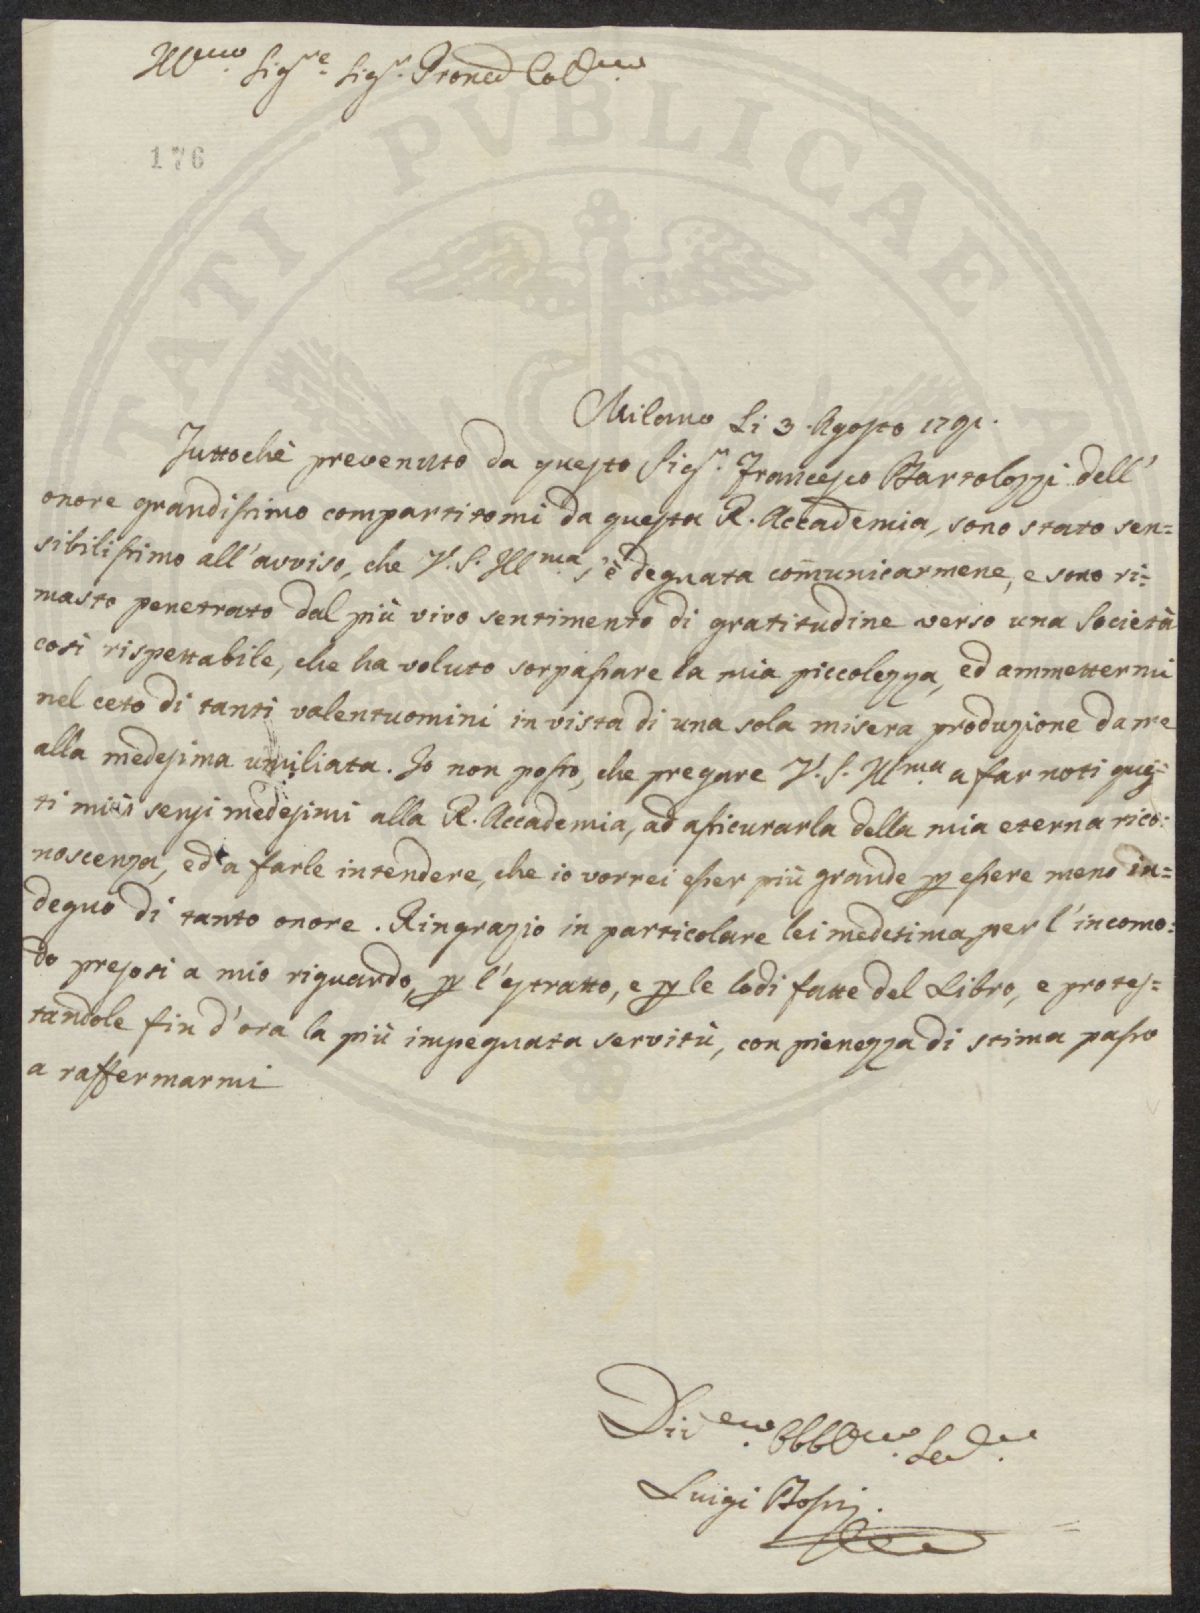 Ill.mo Sig.re Sig.r Pron Col.mo
176
Milano Li 3. Agosto 1791.
Tuttochè prevenuto da questo Sig.r Francesco Bartolozzi dell'
onore grandissimo compartitomi da questa R. Accademia, sono stato sen=
sibilissimo all'avviso, che V. S. Ill.ma s'è degnata comunicarmene, e sono ri=
masto penetrato dal più vivo sentimento di gratitudine verso una Società
così rispettabile, che ha voluto sorpassare la mia piccolezza, ed ammettermi
nel ceto di tanti valentuomini in vista di una sola misera produzione da me
alla medesima umiliata. Io non posso, che pregare V. S. Ill.ma a far noti ques=
ti miei sensi medesimi alla R. Accademia, ad assicurarla della mia eterna rico=
noscenza, ed a farle intendere, che io vorrei esser più grande per essere meno in=
degno di tanto onore. Ringrazio in particolare lei medesima per l'incomo=
do presosi a mio riguardo, per l'estratto, e per le lodi fatte del Libro, e protes=
tandole fin d'ora la più impegnata servitù, con pienezza di stima passo
a raffermarmi
Div.mo Obbl.mo Ser.
Luigi Bossi.
PVBLICAE